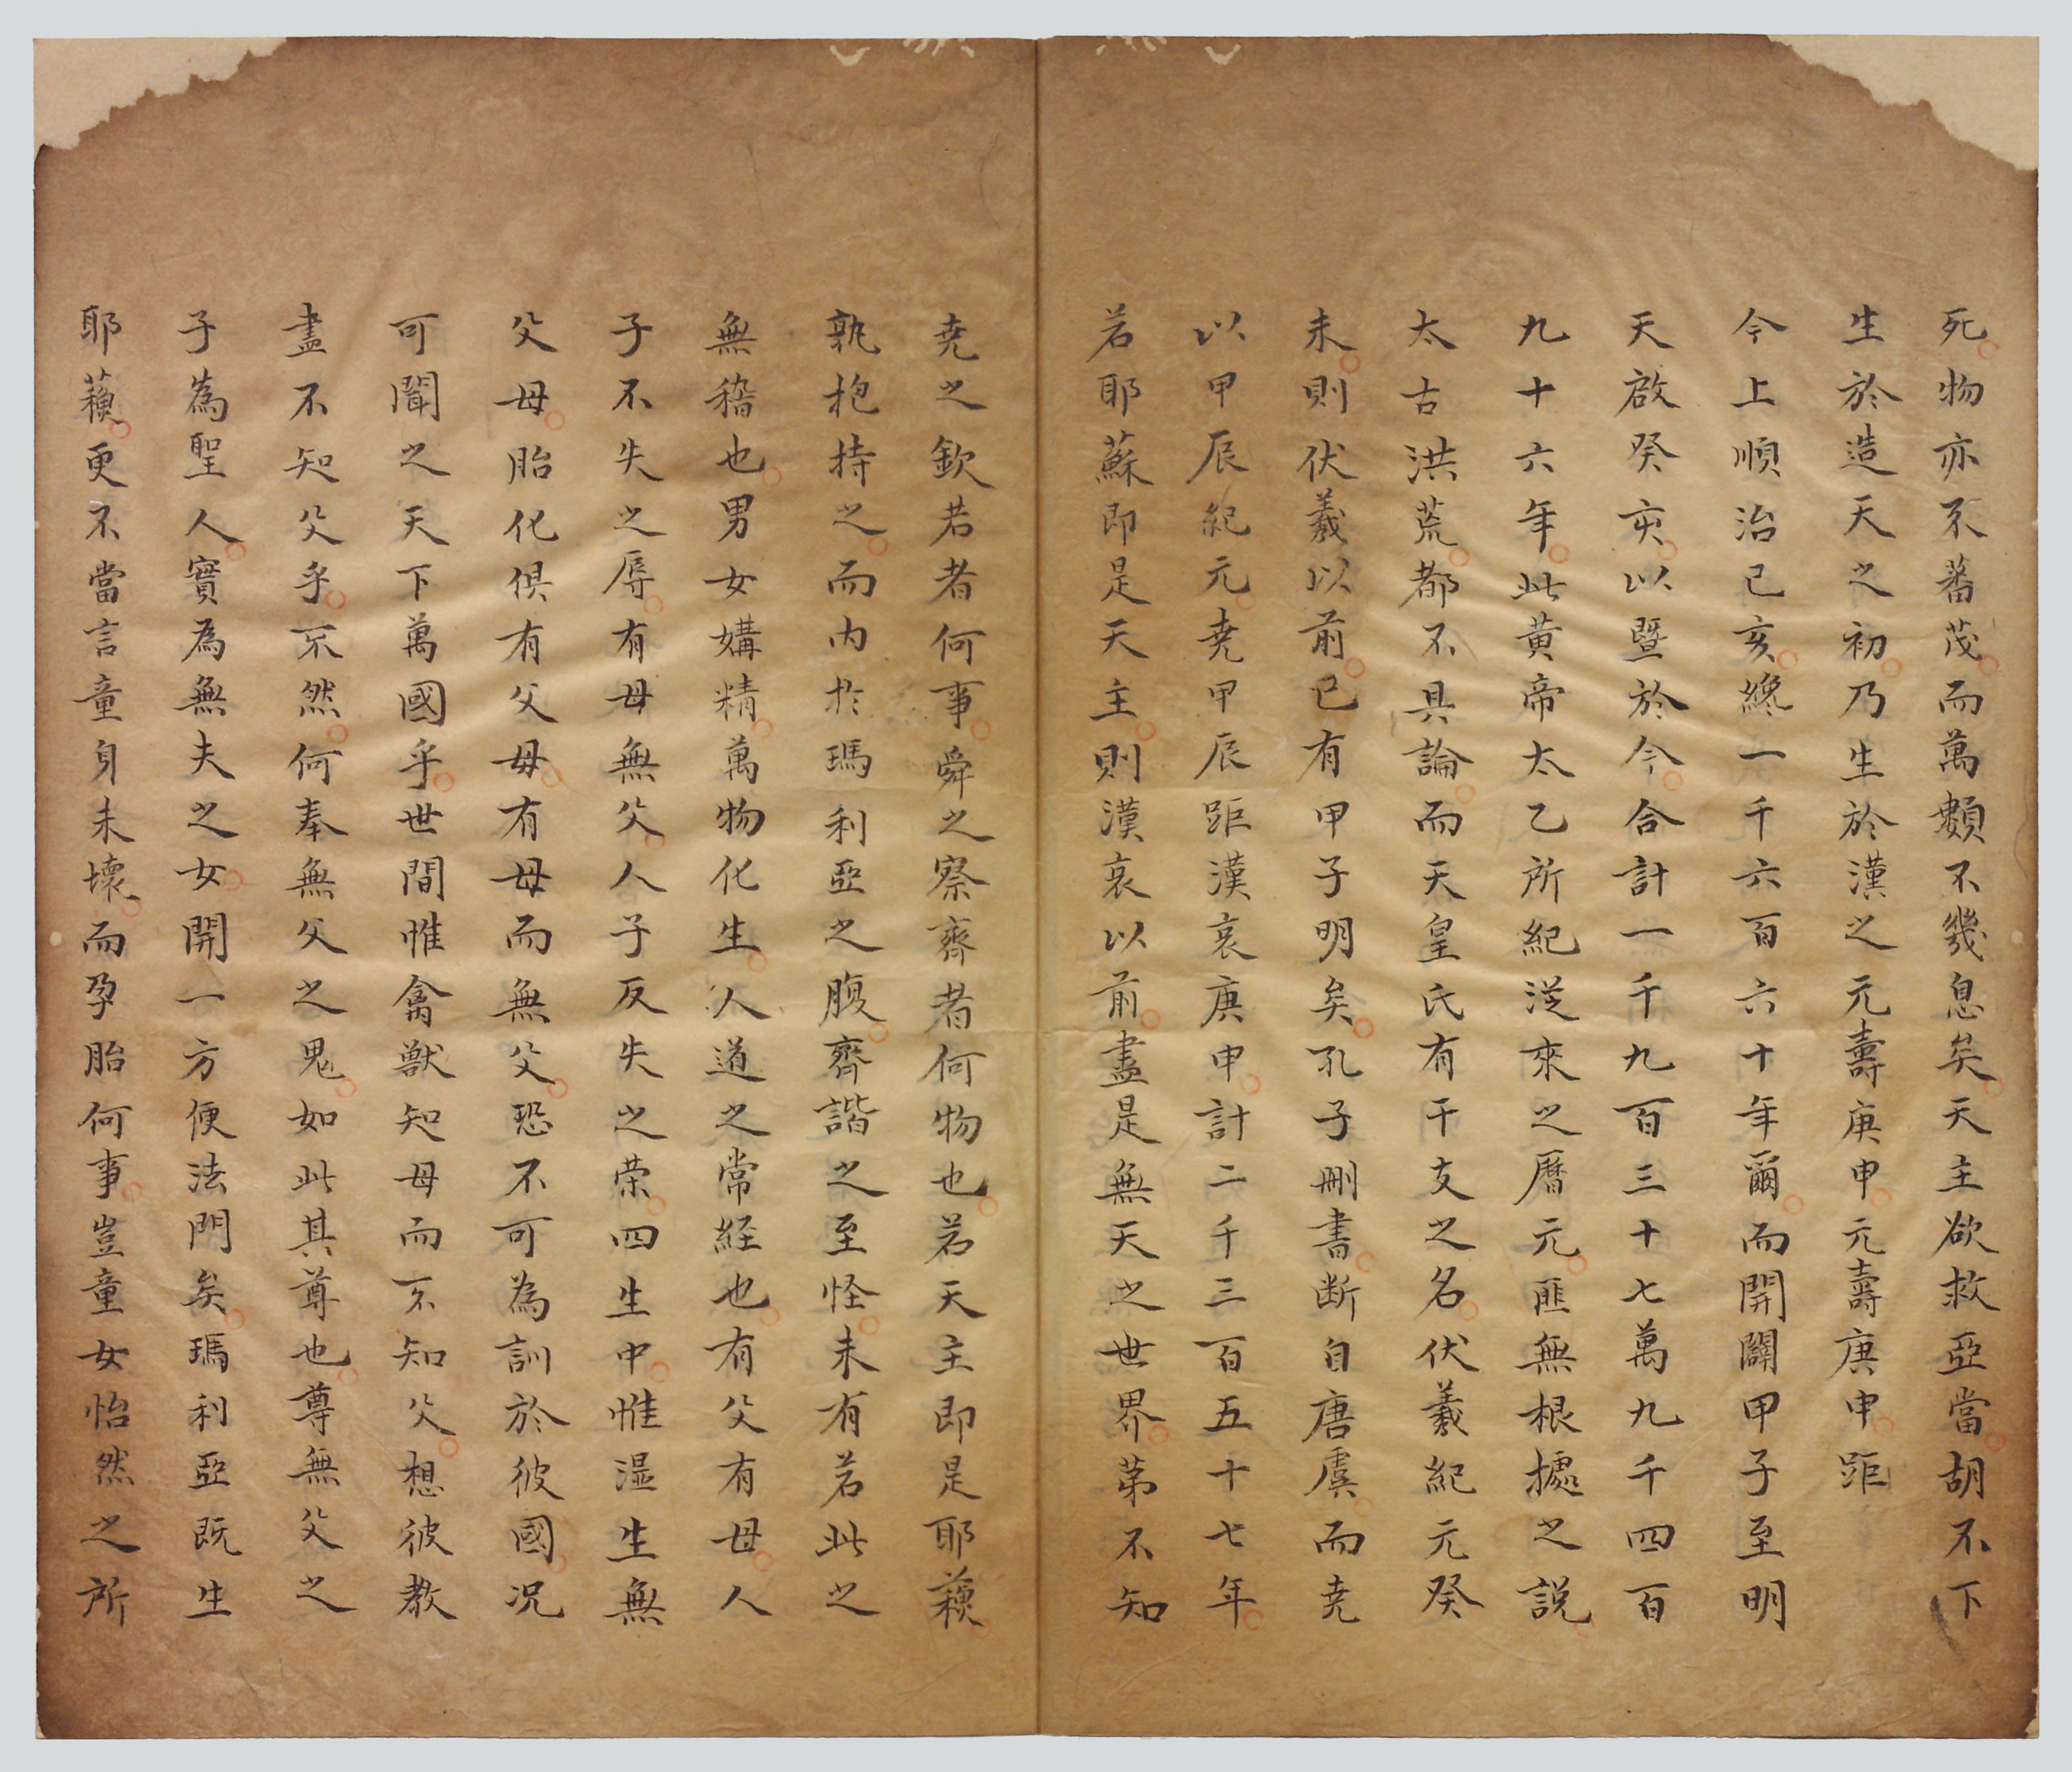 死物亦不蕃茂而萬類不幾息矣天主欲救亞當胡不下
生於造天之初乃生於漢之元壽庚申元壽庚申距
今上順治己亥纔一千六百六十年爾而開闢甲子至明
天啟癸亥以暨於今合計一千九百三十七萬九千四百
九十六年此黃帝太乙所紀從來之曆元匪無根據之説
太古洪荒都不具論而天皇氏有干支之名伏羲紀元癸
未則伏羲以前已有甲子明矣孔子刪書断自唐虞而尭
以甲辰紀元尭甲辰距漢哀庚申計二千三百五十七年
若耶蘇即是天主則漢哀以前盡是無天之世界第不知
尭之欽若者何事舜之察齊者何物也若天主即是耶蘓
孰抱持之而内於瑪利亞之腹齊諧之至怪未有若此之
無稽也男女媾精萬物化生人道之常経也有父有母人
子不失之辱有母無父人子反失之荣四生中惟湿生無
父母胎化俱有父母有母而無父恐不可為訓於彼國况
可闻之天下萬國乎世間惟禽獸知母而不知父想彼教
盡不知父乎不然何奉無父之鬼如此其尊也尊無父之
子為聖人實為無夫之女開一方便法門矣瑪利亞既生
耶蘓更不當言童身未壞而孕胎何事豈童女怡然之所